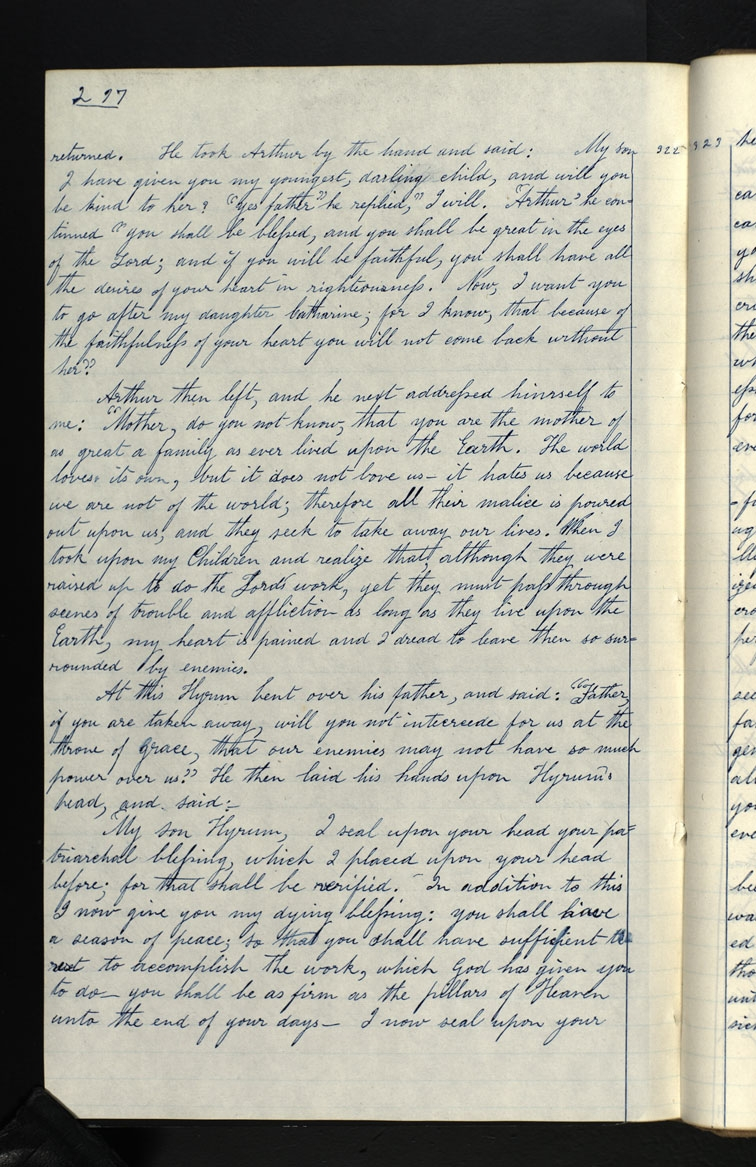 297
returned. He took Arthur by the hand and said: My son
I have given you my youngest, darling child, and will you
be kind to her? "Yes father" he replied," I will. "Arthur" he con-
tinued "you shall be blessed, and you shall be great in the eyes
of the Lord; and if you will be faithful, you shall have all
the desires of your heart in righteousness. Now, I want you
to go after my daughter Catharine; for I know, that because of
the faithfulness of your heart you will not come back without
her"?
Arthur then left, and he next addressed himself to
me: "Mother, do you not know, that you are the mother of
as great a family as ever lived upon the Earth. The world
loves its own, but it does not love us— it hates us because
we are not of the world; therefore all their malice is poured
out upon us, and they seek to take away our lives. When I
took upon my Children and realize that, although they were
raised up to do the Lords work, yet they must pass through
scenes of trouble and affliction as long as they live upon the
Earth, my heart is pained and I dread to leave then so sur-
rounded by enemies.
At this Hyrum bent over his father, and said: "Father,
if you are taken away, will you not intecreede for us at the
throne of grace, that our enemies may not have so much
power over us?" He then laid his hands upon Hyrum's
head, and said:—
My son Hyrum, I seal upon your head your pa=
triarchal blessing, which I placed upon your head
before; for that shall be verified. In addition to this
I now give you my dying blessing: you shall have
a season of peace; so that you shall have sufficient
rest to accomplish the work, which God has given you
to do— you shall be as firm as the pillars of Heaven
unto the end of your days— I now seal upon your
322 323